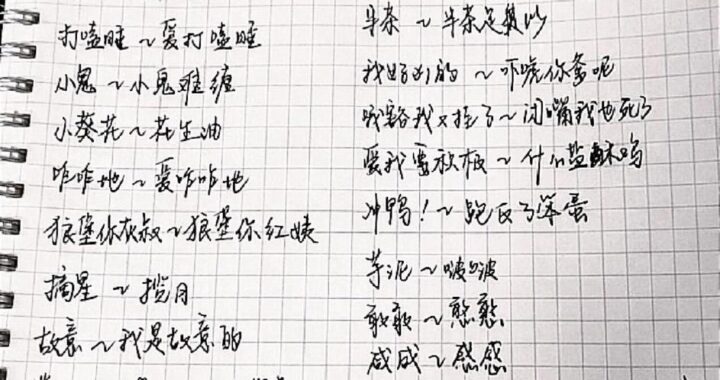 打嗑睡～爱打嗑睡
小鬼～小鬼难缠
小葵花～花生油
咋咋地～爱咋咋地
狼堡你灰叔～狼堡你红姨
摘星～揽月
故意～我是故意的
早茶～早茶是奥妙
我好凶的～吓唬你爹呢
哦豁我又挂了～闭嘴我也死了
爱我要放板～什么盐酥鸡
冲鸭！～跑反了笨蛋
芋泥～啵啵
敢敢～憨憨
咸咸～感感